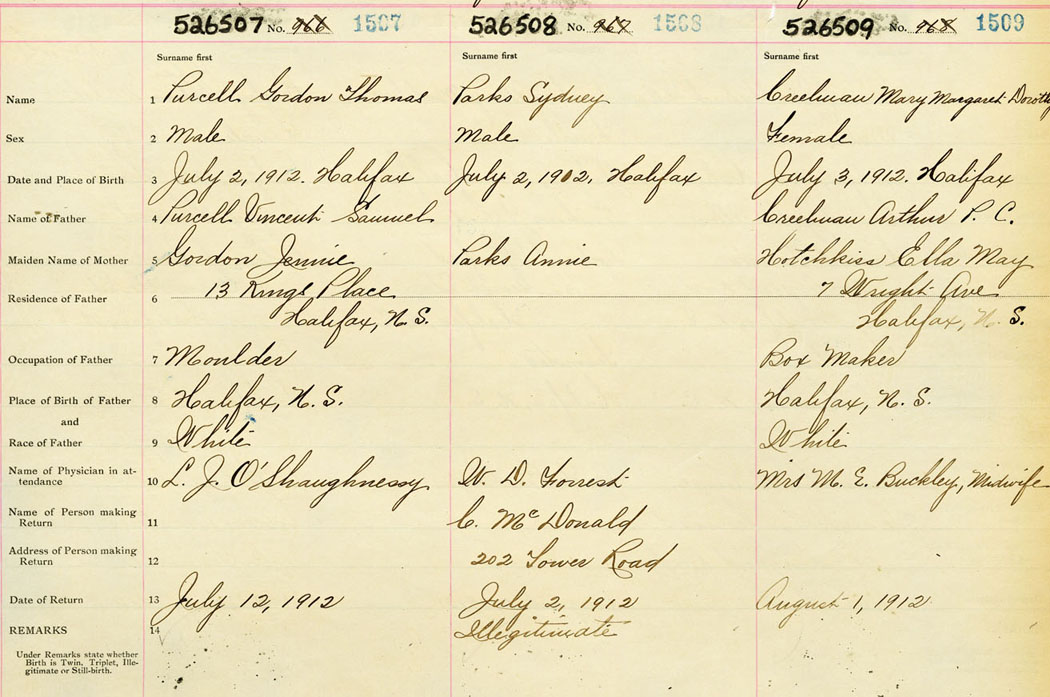 526507 No. 966 1507 526508 No. 967 1508 526509 No. 968 1509
Surname first Surname first Surname first
Name 1 Purcell Gordon Thomas Parks Sydney Creelman Mary Margaret Dorothy
Sex 2 Male Male Female
Date and Place of Birth 3 July 2, 1912. Halifax July 2, 1902, Halifax July 3, 1912. Halifax
Name of Father 4 Purcell Vincent Samuel Creelman Arthur P. C.
Maiden Name of Mother 5 Gordon Jennie Parks Annie Hotchkiss Ella May
Residence of Father 6 13 Kings Place 7 Wright Ave
Halifax, N. S. Halifax, N. S.
Occupation of Father 7 Moulder Box Maker
Place of Birth of Father 8 Halifax, N. S. Halifax, N. S.
and
Race of Father 9 White White
Name of Physician in at-
tendance 10 L. J. O'Shaughnessy W. D. Forrest Mrs M. E. Buckley, Midwife
Name of Person making
Return 11 C. McDonald
Address of Person making
Return 12 202 Tower Road
Date of Return 13 July 12, 1912 July 2, 1912 August 1, 1912
REMARKS 14 Illegitimate
Under Remarks state whether
Birth is Twin, Triplet, Ille-
gitimate or Still-birth.